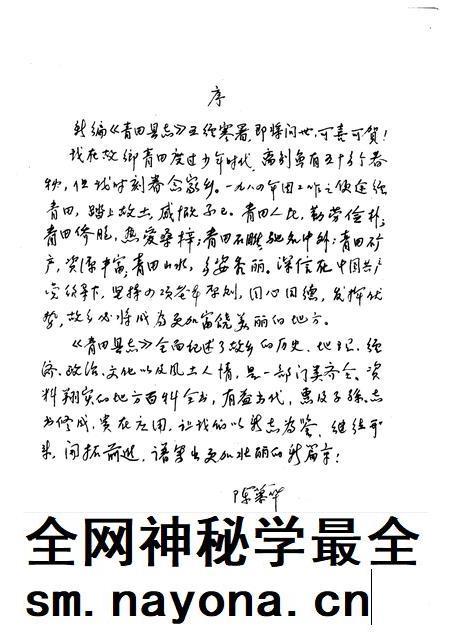 序
新编《青田县志》五经寒暑,即将问世,可喜可贺!
我在故乡青田度过少年时代,离别虽有五十多个春
秋,但我时刻眷念家乡。一九八四年因工作之便途经
青田,踏上故土,感慨不已。青田人民,勤劳俭朴;
青田侨胞,热爱桑梓;青田石雕,驰名中外;青田矿
产,资源丰富;青田山水,多姿秀丽。深信在中国共产
党领导下,坚持四项基本原则,同心同德,发挥优
势,故乡必将成为更加富饶美丽的地方。
《青田县志》全面记述了故乡的历史、地理、经
济、政治、文化以及风土人情,是一部门类齐全、资
料翔实的地方百科全书,有益当代,惠及子孙。志
书修成,贵在应用,让我们以新志为鉴,继往开
来,开拓前进,谱写出更加壮丽的新篇章!
陈慕华
全网神秘学最全
sm.nayona.cn